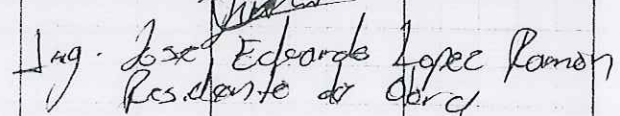 Ing. Jose Eduardo Lopez Ramon
Residente de Obra